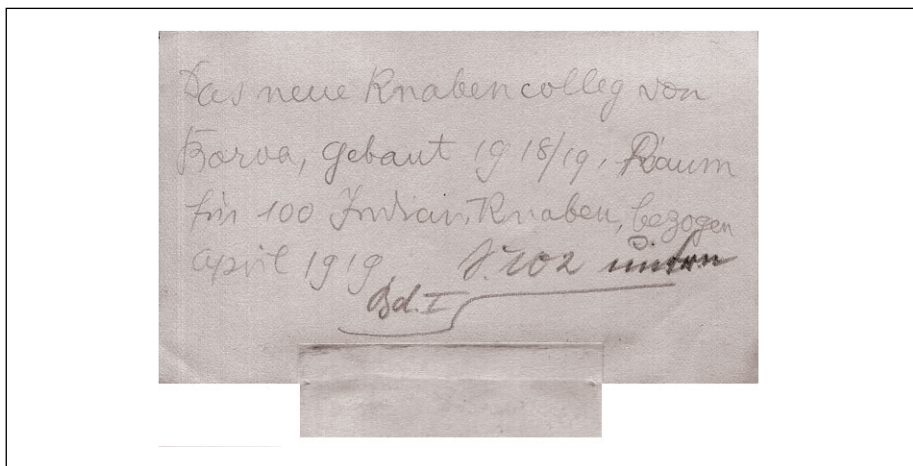 Das neue Knabencolleg von
Boroa, gebaut 1918/19, Raum
für 100 Indian. Knaben, bezogen
April 1919, S. 202 unten
Bd. I